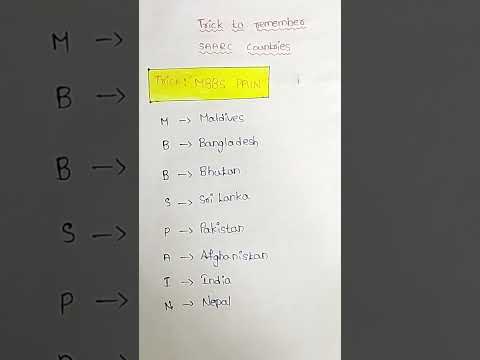 Trick to remember
SAARC Countries
Trick: "MBBS PAIN"
M → Maldives
B → Bangladesh
B → Bhutan
S → Sri Lanka
P → Pakistan
A → Afghanistan
I → India
N → Nepal
M →
B →
B →
S →
P →